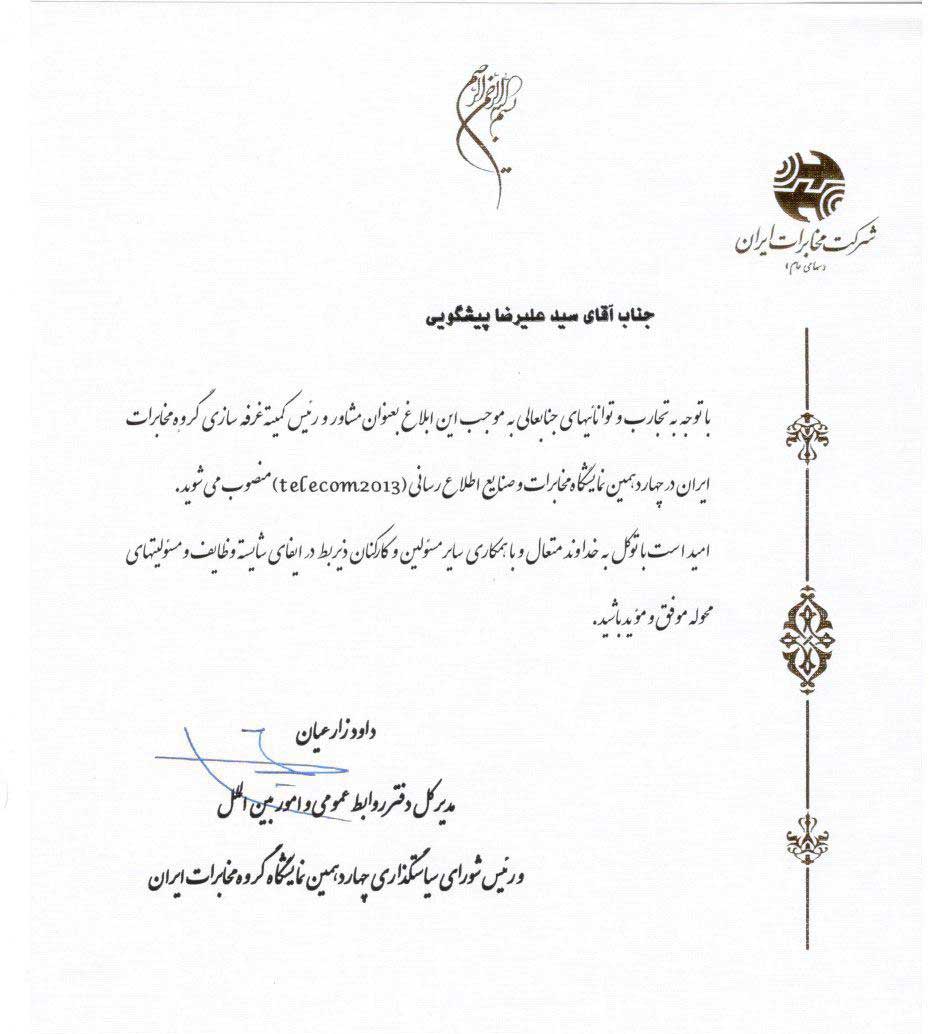 بسم الله الرحمن الرحیم
شرکت مخابرات ایران
(سهامی عام)
جناب آقای سید علیرضا پیشگویی
با توجه به تجارب و توانائیهای جنابعالی به موجب این ابلاغ بعنوان مشاور و رئیس کمیته غرفه سازی گروه مخابرات
ایران در چهاردهمین نمایشگاه مخابرات و صنایع اطلاع رسانی (telecom2013) منصوب می شوید.
امید است با توکل به خداوند متعال و با همکاری سایر مسئولین و کارکنان ذیربط در ایفای شایسته وظایف و مسئولیتهای
محوله موفق و مؤید باشید.
داود زارعیان
مدیر کل دفتر روابط عمومی و امور بین الملل
و رئیس شورای سیاستگذاری چهاردهمین نمایشگاه گروه مخابرات ایران